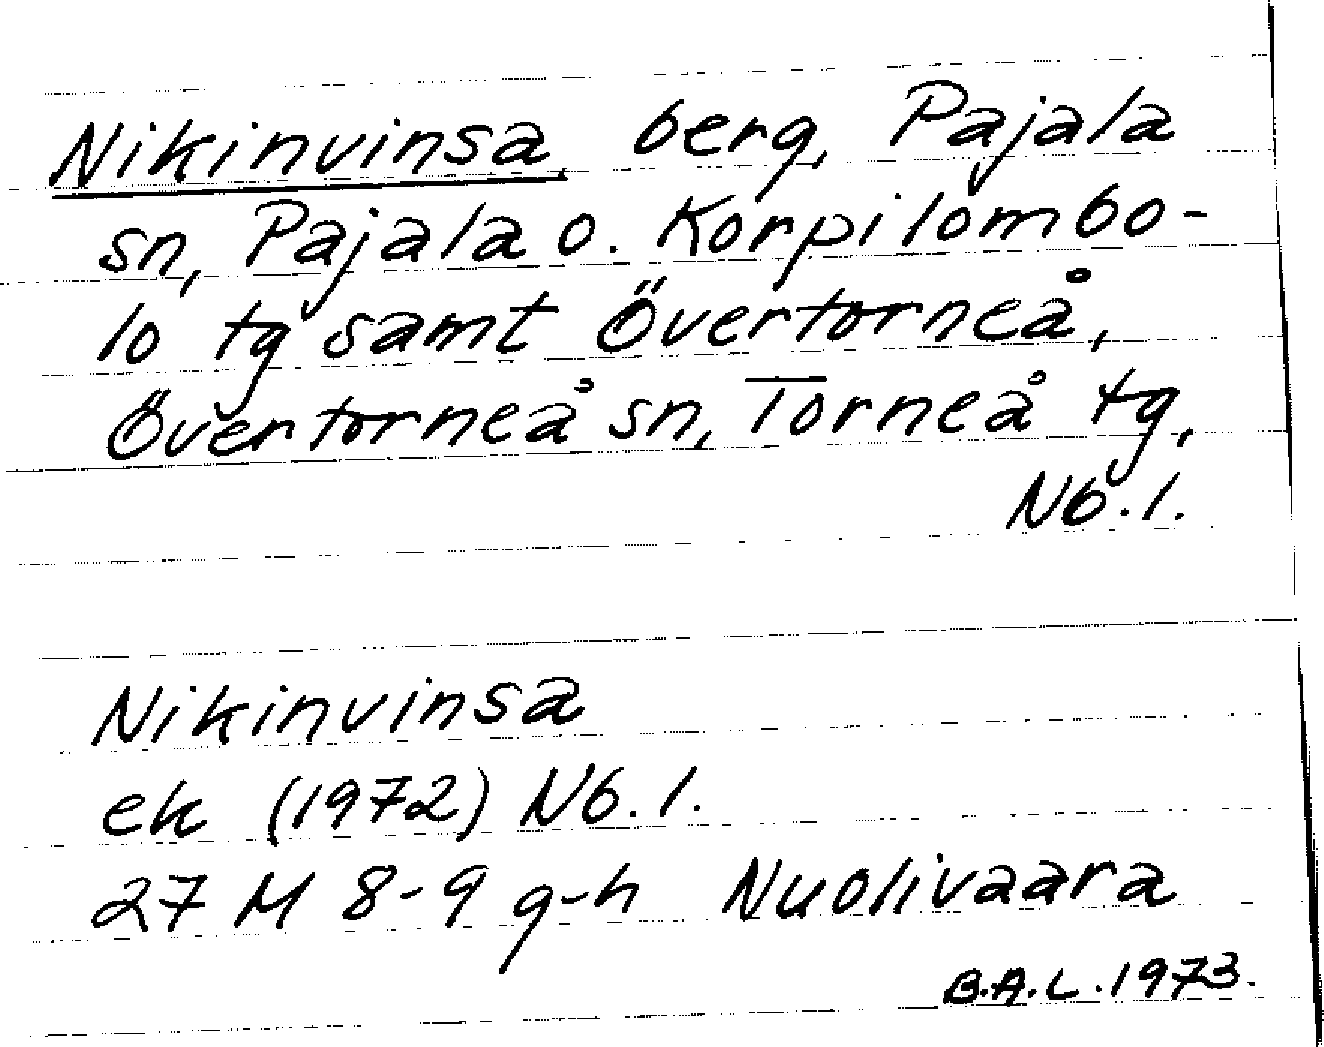 Nikinvinsa, berg, Pajala
sn, Pajala o. Korpilombo-
lo tg samt Övertorneå,
Övertorneå sn, Torneå tg,
Nb. l.
Nikinvinsa
ek (1972) Nb. l.
27 M 8-9 g-h Nuolivaara
B.A.L. 1973.